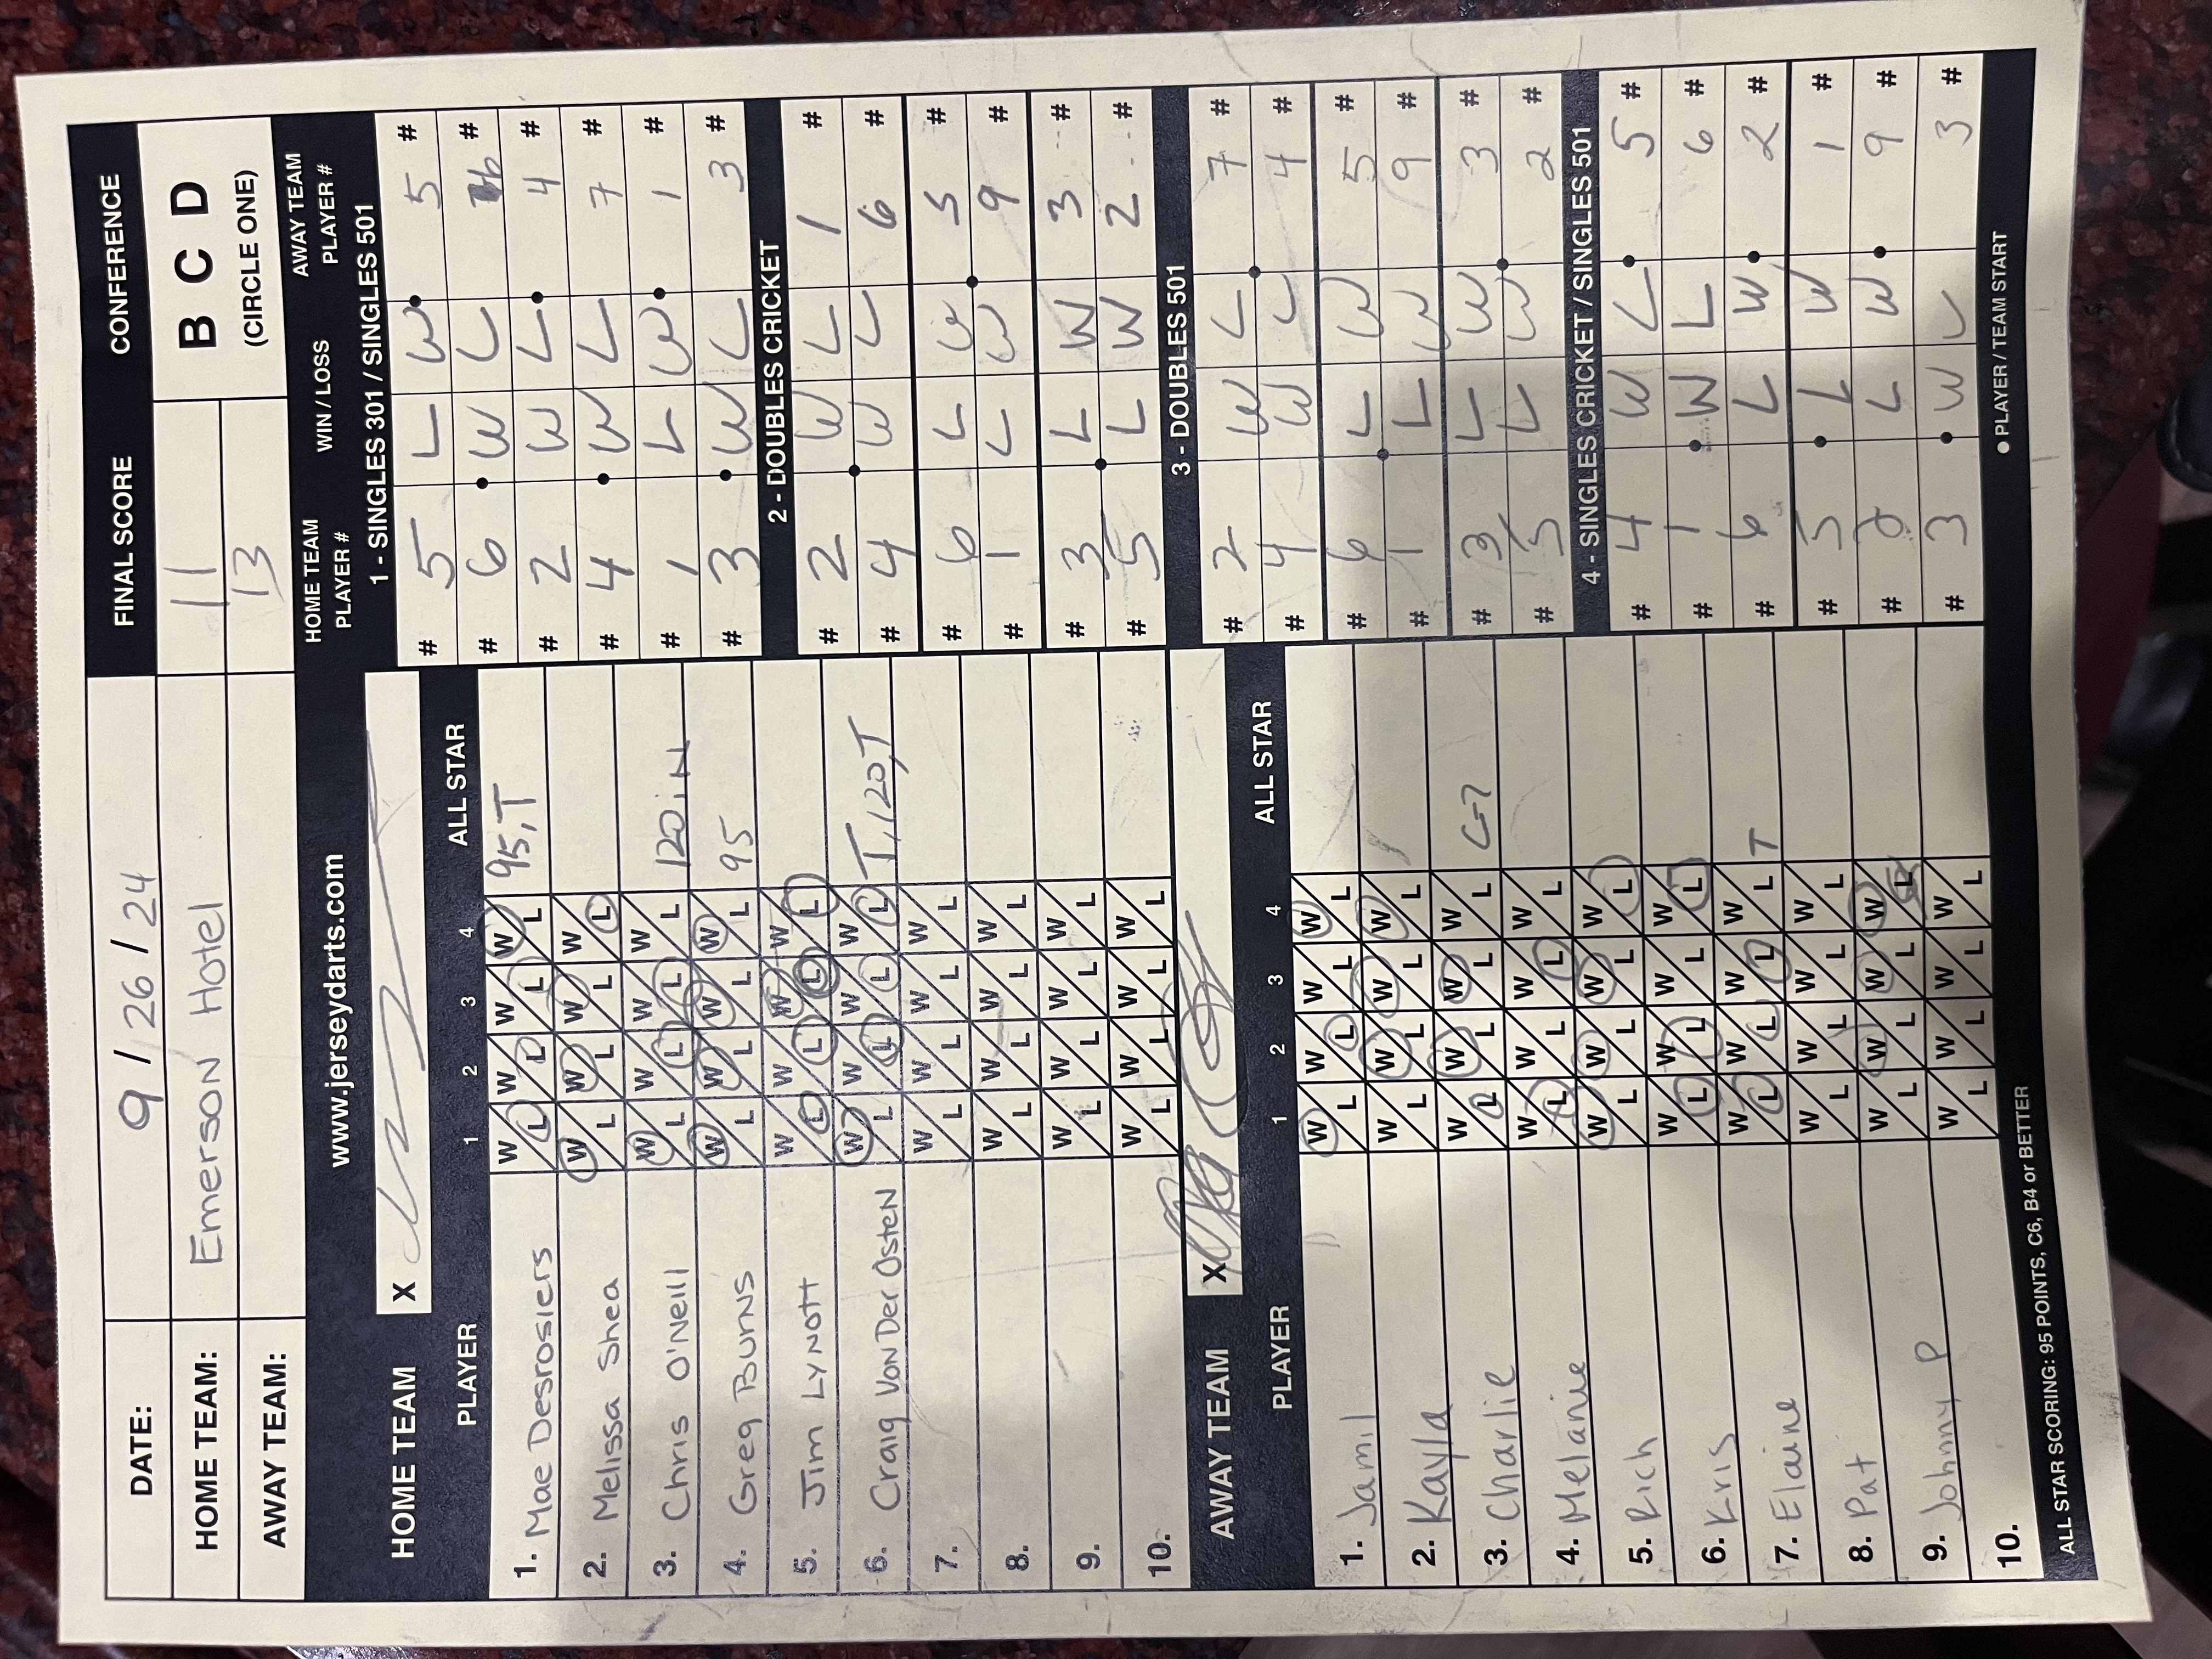 DATE: 9/26/24 FINAL SCORE CONFERENCE
HOME TEAM: Emerson Hotel 11 B C D
AWAY TEAM: 13 (CIRCLE ONE)
www.jerseydarts.com
HOME TEAM X
PLAYER 1 2 3 4 ALL STAR
1. Mae Desrosiers W L W L W L W L 95,T
2. Melissa Shea W L W L W L W L
3. Chris O'Neill W L W L W L W L 120 iN
4. Greg Burns W L W L W L W L 95
5. Jim Lynott W L W L W L W L
6. Craig Von Der Osten W L W L W L W L T,120,T
7. W L W L W L W L
8. W L W L W L W L
9. W L W L W L W L
10. W L W L W L W L
AWAY TEAM X
PLAYER 1 2 3 4 ALL STAR
1. Jamil W L W L W L W L
2. Kayla W L W L W L W L
3. Charlie W L W L W L W L C-7
4. Melanie W L W L W L W L
5. Rich W L W L W L W L
6. Kris W L W L W L W L
7. Elaine W L W L W L W L T
8. Pat W L W L W L W L
9. Johnny P W L W L W L W L
10. W L W L W L W L
ALL STAR SCORING: 95 POINTS, C6, B4 or BETTER
HOME TEAM PLAYER # WIN / LOSS AWAY TEAM PLAYER #
1 - SINGLES 301 / SINGLES 501
# 5 L W 5 #
# 6 W L 6 #
# 2 W L 4 #
# 4 W L 7 #
# 1 L W 1 #
# 3 W L 3 #
2 - DOUBLES CRICKET
# 2 W L 1 #
# 4 W L 6 #
# 6 L W 5 #
# 1 L W 9 #
# 3 L W 3 #
# 5 L W 2 #
3 - DOUBLES 501
# 2 W L 7 #
# 4 W L 4 #
# 6 L W 5 #
# 1 L W 9 #
# 3 L W 3 #
# 5 L W 2 #
4 - SINGLES CRICKET / SINGLES 501
# 4 W L 5 #
# 1 W L 6 #
# 6 L W 2 #
# 5 L W 1 #
# 2 L W 9 #
# 3 W L 3 #
● PLAYER / TEAM START